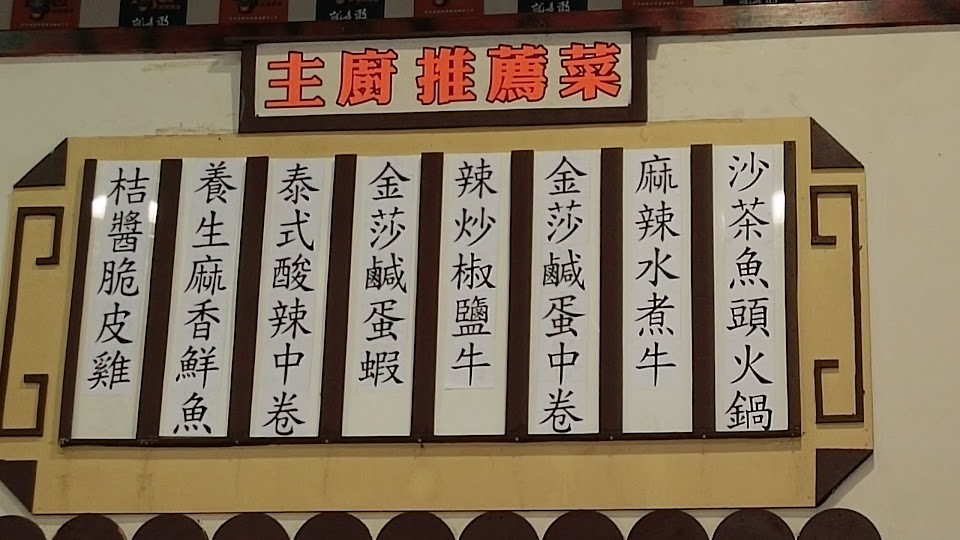 主廚推薦菜
沙茶魚頭火鍋
麻辣水煮牛
金莎鹹蛋中卷
辣炒椒鹽牛
金莎鹹蛋蝦
泰式酸辣中卷
養生麻香鮮魚
桔醬脆皮雞